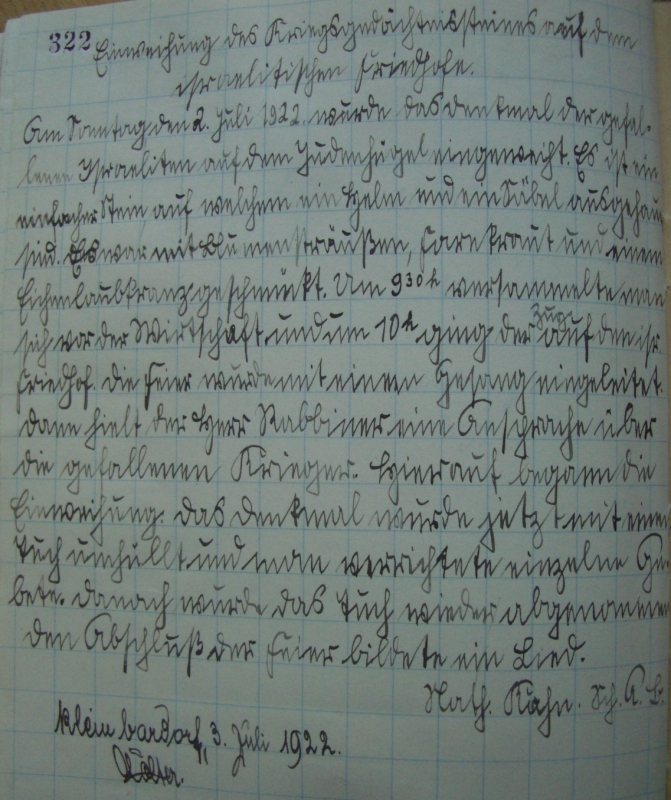 322 Einweihung des Kriegsgedächtnissteines auf dem
israelitischen Friedhofe.
Am Sonntag, den 2. Juli 1922 wurde das Denkmal der gefal-
lenen Israeliten auf dem Judenhügel eingeweiht. Es ist ein
einfacher Stein auf welchem ein Helm und ein Säbel ausgehau
sind. Es war mit Blumensträußen, Farnkraut und einem
Eichenlaubkranz geschmückt. Um 9 30 h versammelte man
sich vor der Wirtschaft, und um 10 h ging der Zug auf den isr.
Friedhof. Die Feier wurde mit einem Gesang eingeleitet.
Dann hielt der Herr Rabbiner eine Ansprache über
die gefallenen Krieger. Hierauf begann die
Einweihung. Das Denkmal wurde jetzt mit einem
Tuch umhüllt und man verrichtete einzelne Ge-
bete. Danach wurde das Tuch wieder abgenommen
den Abschluß der Feier bildete ein Lied.
Nath. Kahn. Sch. A. L.
Kleinbardorf, 3. Juli 1922.